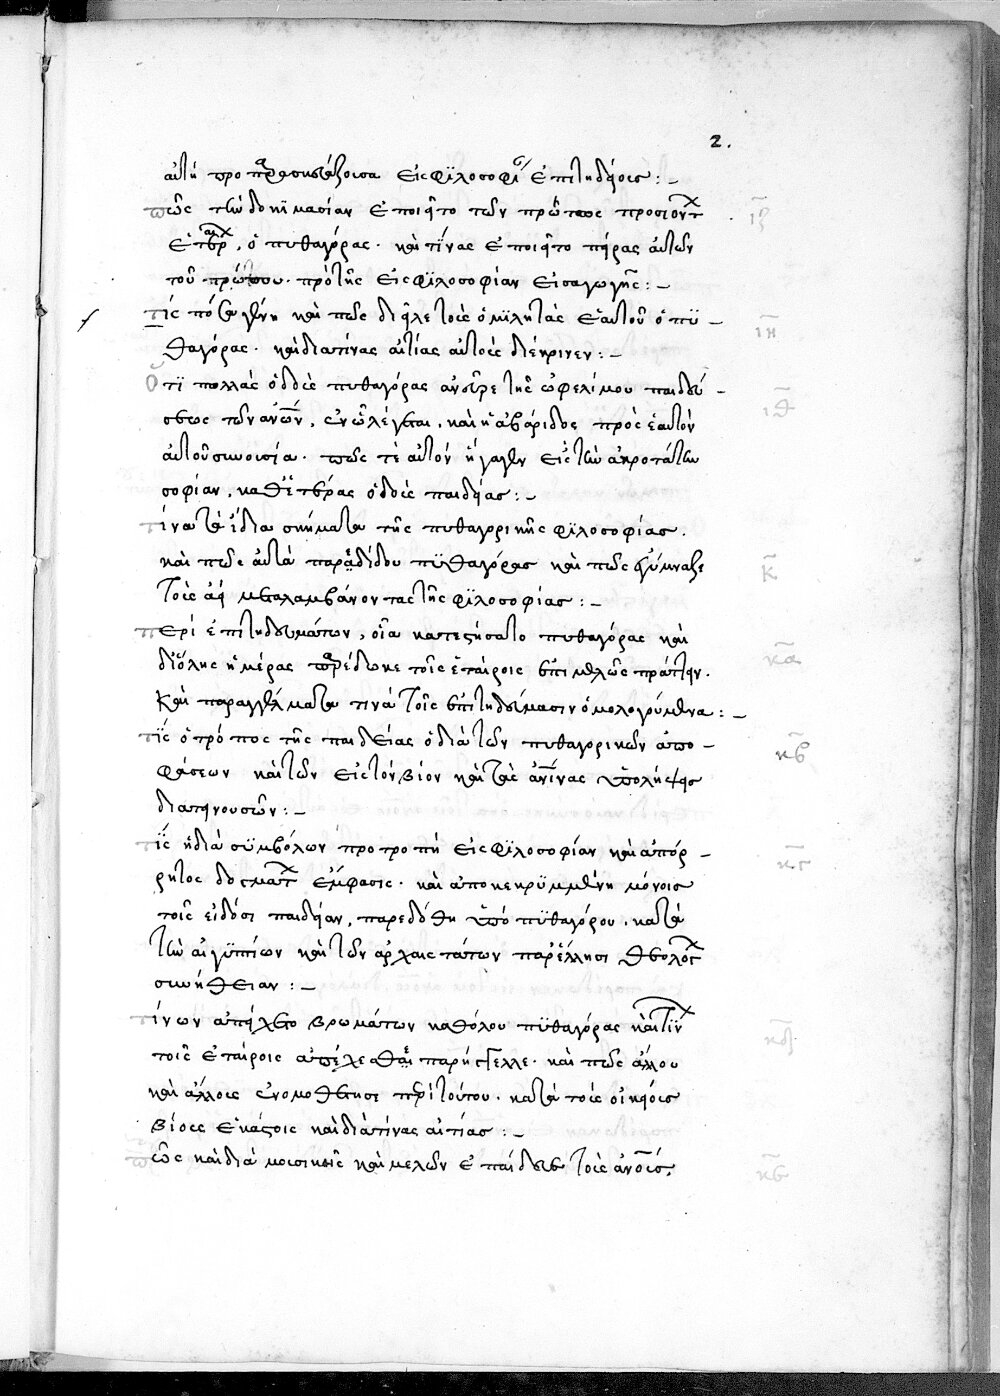 2.
αὐτὴ προπαρασκευάζουσα εἰς φιλοσοφί ἐπιτηδείοις :~
πῶς τὴν δοκιμασίαν ἐποιεῖτο τῶν πρώτως προσιόντ ιζ
ἑταίρ, ὁ πυθαγόρας. καὶ τίνας ἐποιεῖτο πείρας αὐτῶν
τοῦ πρώτου. πρὸ τῆς εἰς φιλοσοφίαν εἰσαγωγῆς :~
τίς πόσα γένη καὶ πῶς διεῖλε τοὺς ὁμιλητὰς ἑαυτοῦ ὁ πυ- ιη
θαγόρας. καὶ διατίνας αἰτίας αὐτοὺς διέκρινεν :~
Ὅτι πολλὰς ὁδοὺς πυθαγόρας ἀνεῦρε τῆς ὠφελίμου παιδεύ-
σεως τῶν ἀνων, ἐν ὧ λέγεται, καὶ ἡ ἀβάριδος πρὸς ἑαυτὸν ιθ
αὐτοῦ συνουσία. πῶς τὲ αὐτὸν ἤγαγεν εἰς τὴν ἀκροτάτην
σοφίαν, καθ' ἑτέρας ὁδοὺς παιδείας :~
τίνα τὰ ἴδια σκήματα τῆς πυθαγορικῆς φιλοσοφίας.
καὶ πῶς αὐτὰ παρεδίδου πυθαγόρας καὶ πῶς ἐγύμναζε κ
τοὺς ἀεὶ μεταλαμβάνοντας τῆς φιλοσοφίας :~
περὶ ἐπιτηδευμάτων, οἷα κατεστήσατο πυθαγόρας καὶ
δι' ὅλης ἡμέρας παρέδωκε τοῖς ἑταίροις ἐπιμελῶς πράττειν. κα
καὶ παραγγέλματα τινὰ τοῖς ἐπιτηδεύμασιν ὁμολογούμενα :~
τίς ὁ τρόπος τῆς παιδείας ὁ διὰ τῶν πυθαγορικῶν ἀπο- κβ
φάσεων καὶ τῶν εἰς τὸν βίον καὶ τὰς ἀνίνας ὑπολήψεις
διατεινουσῶν :~
τίς ἡ διὰ συμβόλων προτροπὴ εἰς φιλοσοφίαν καὶ ἀπόρ- κγ
ρητος δογματ ἔμφασις. καὶ ἀποκεκρυμμένη μόνοις
τοῖς εἰδόσι παιδείαν, παρεδόθη ὑπὸ πυθαγόρου. κατὰ
τὴν αἰγυπτίων καὶ τῶν ἀρχαιοτάτων παρ' ἕλλησι θεολόγ
συνήθειαν :~
τίνων ἀπείχετο βρωμάτων καθόλου πυθαγόρας καὶ τίν
τοῖς ἑταίροις ἀπέχεσθαι παρήγγελλε. καὶ πῶς ἄλλου κδ
καὶ ἄλλοις ἐνομοθέτησε περὶ τούτου. κατὰ τοὺς οἰκείους
βίους ἑκάστοις καὶ διὰ τίνας αἰτίας :~
πῶς καὶ διὰ μουσικῆς καὶ μελῶν ἐπαίδευε τοὺς ἀνους. κε